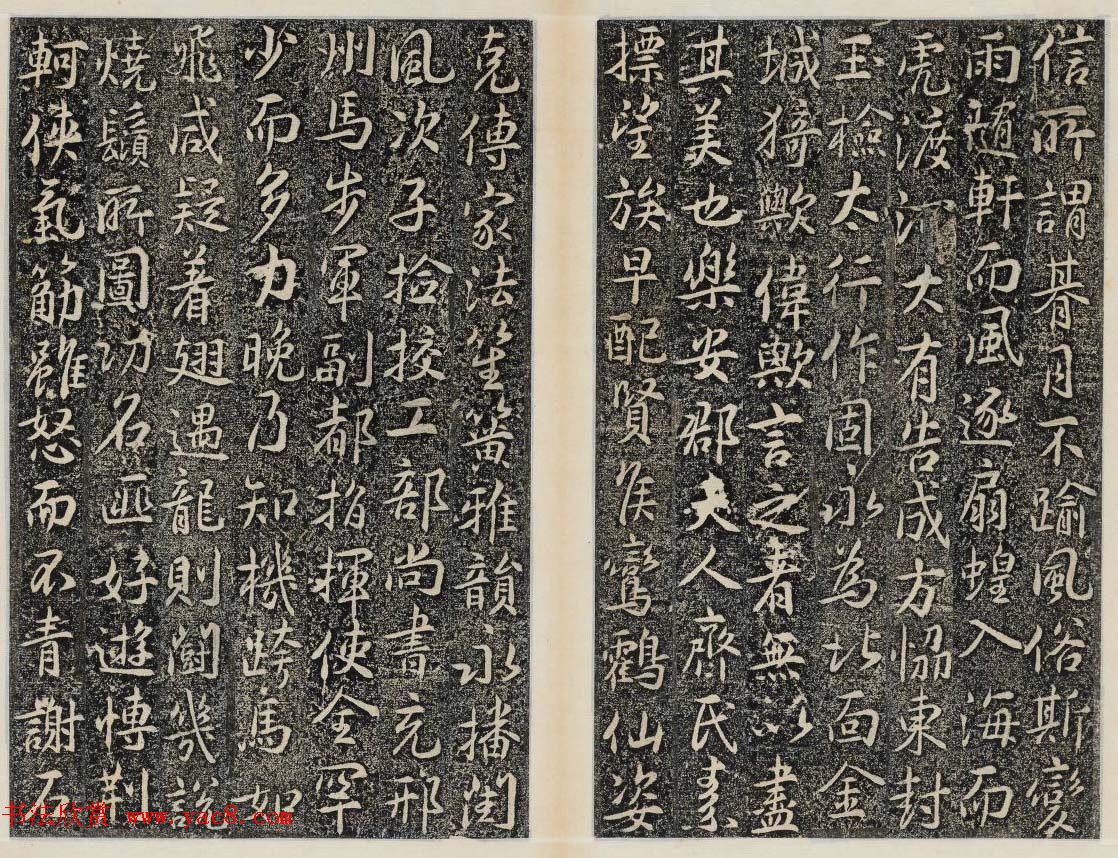 信所謂朞月不踰風俗斯變
雨隨軒而風逐扇蝗入海而
虎渡河大有告成方恊東封
玉檢太行作固永為北面金
城猗歟偉歟言之者無以盡
其美也樂安郡夫人齊氏素
摽望族早配賢侯鸞鶴仙姿
克傳家法笙簧雅韻永播閨
風次子捡挍工部尚書充邢
州馬步軍副都指揮使全罕
少而多力晚乃知機跨馬如
飛咸疑着翅遇龍則鬭幾説
燒鬚所圖功名匪好遊愽荆
軻俠氣筋雖怒而不青謝石
书法欣赏 www.yac8.com